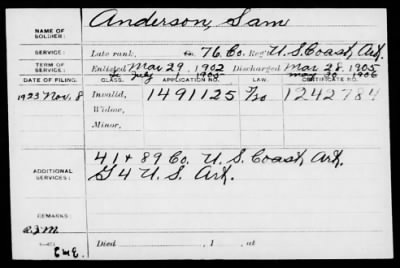 Anderson, Sam
NAME OF SOLDIER:
SERVICE: Late rank, Co. 76 Co. Reg't U.S. Coast Art.
TERM OF SERVICE: Enlisted Mar 29, 1902 Discharged Mar 28, 1905
July 1905 May 30 1906
DATE OF FILING. CLASS. APPLICATION NO. LAW. CERTIFICATE NO.
1923 Nov. 8 Invalid, 1491125 1242784
Widow,
Minor,
ADDITIONAL SERVICES: 41 & 89 Co. U.S. Coast Art.
G 4 U.S. Art.
REMARKS:
Died , 1 , at